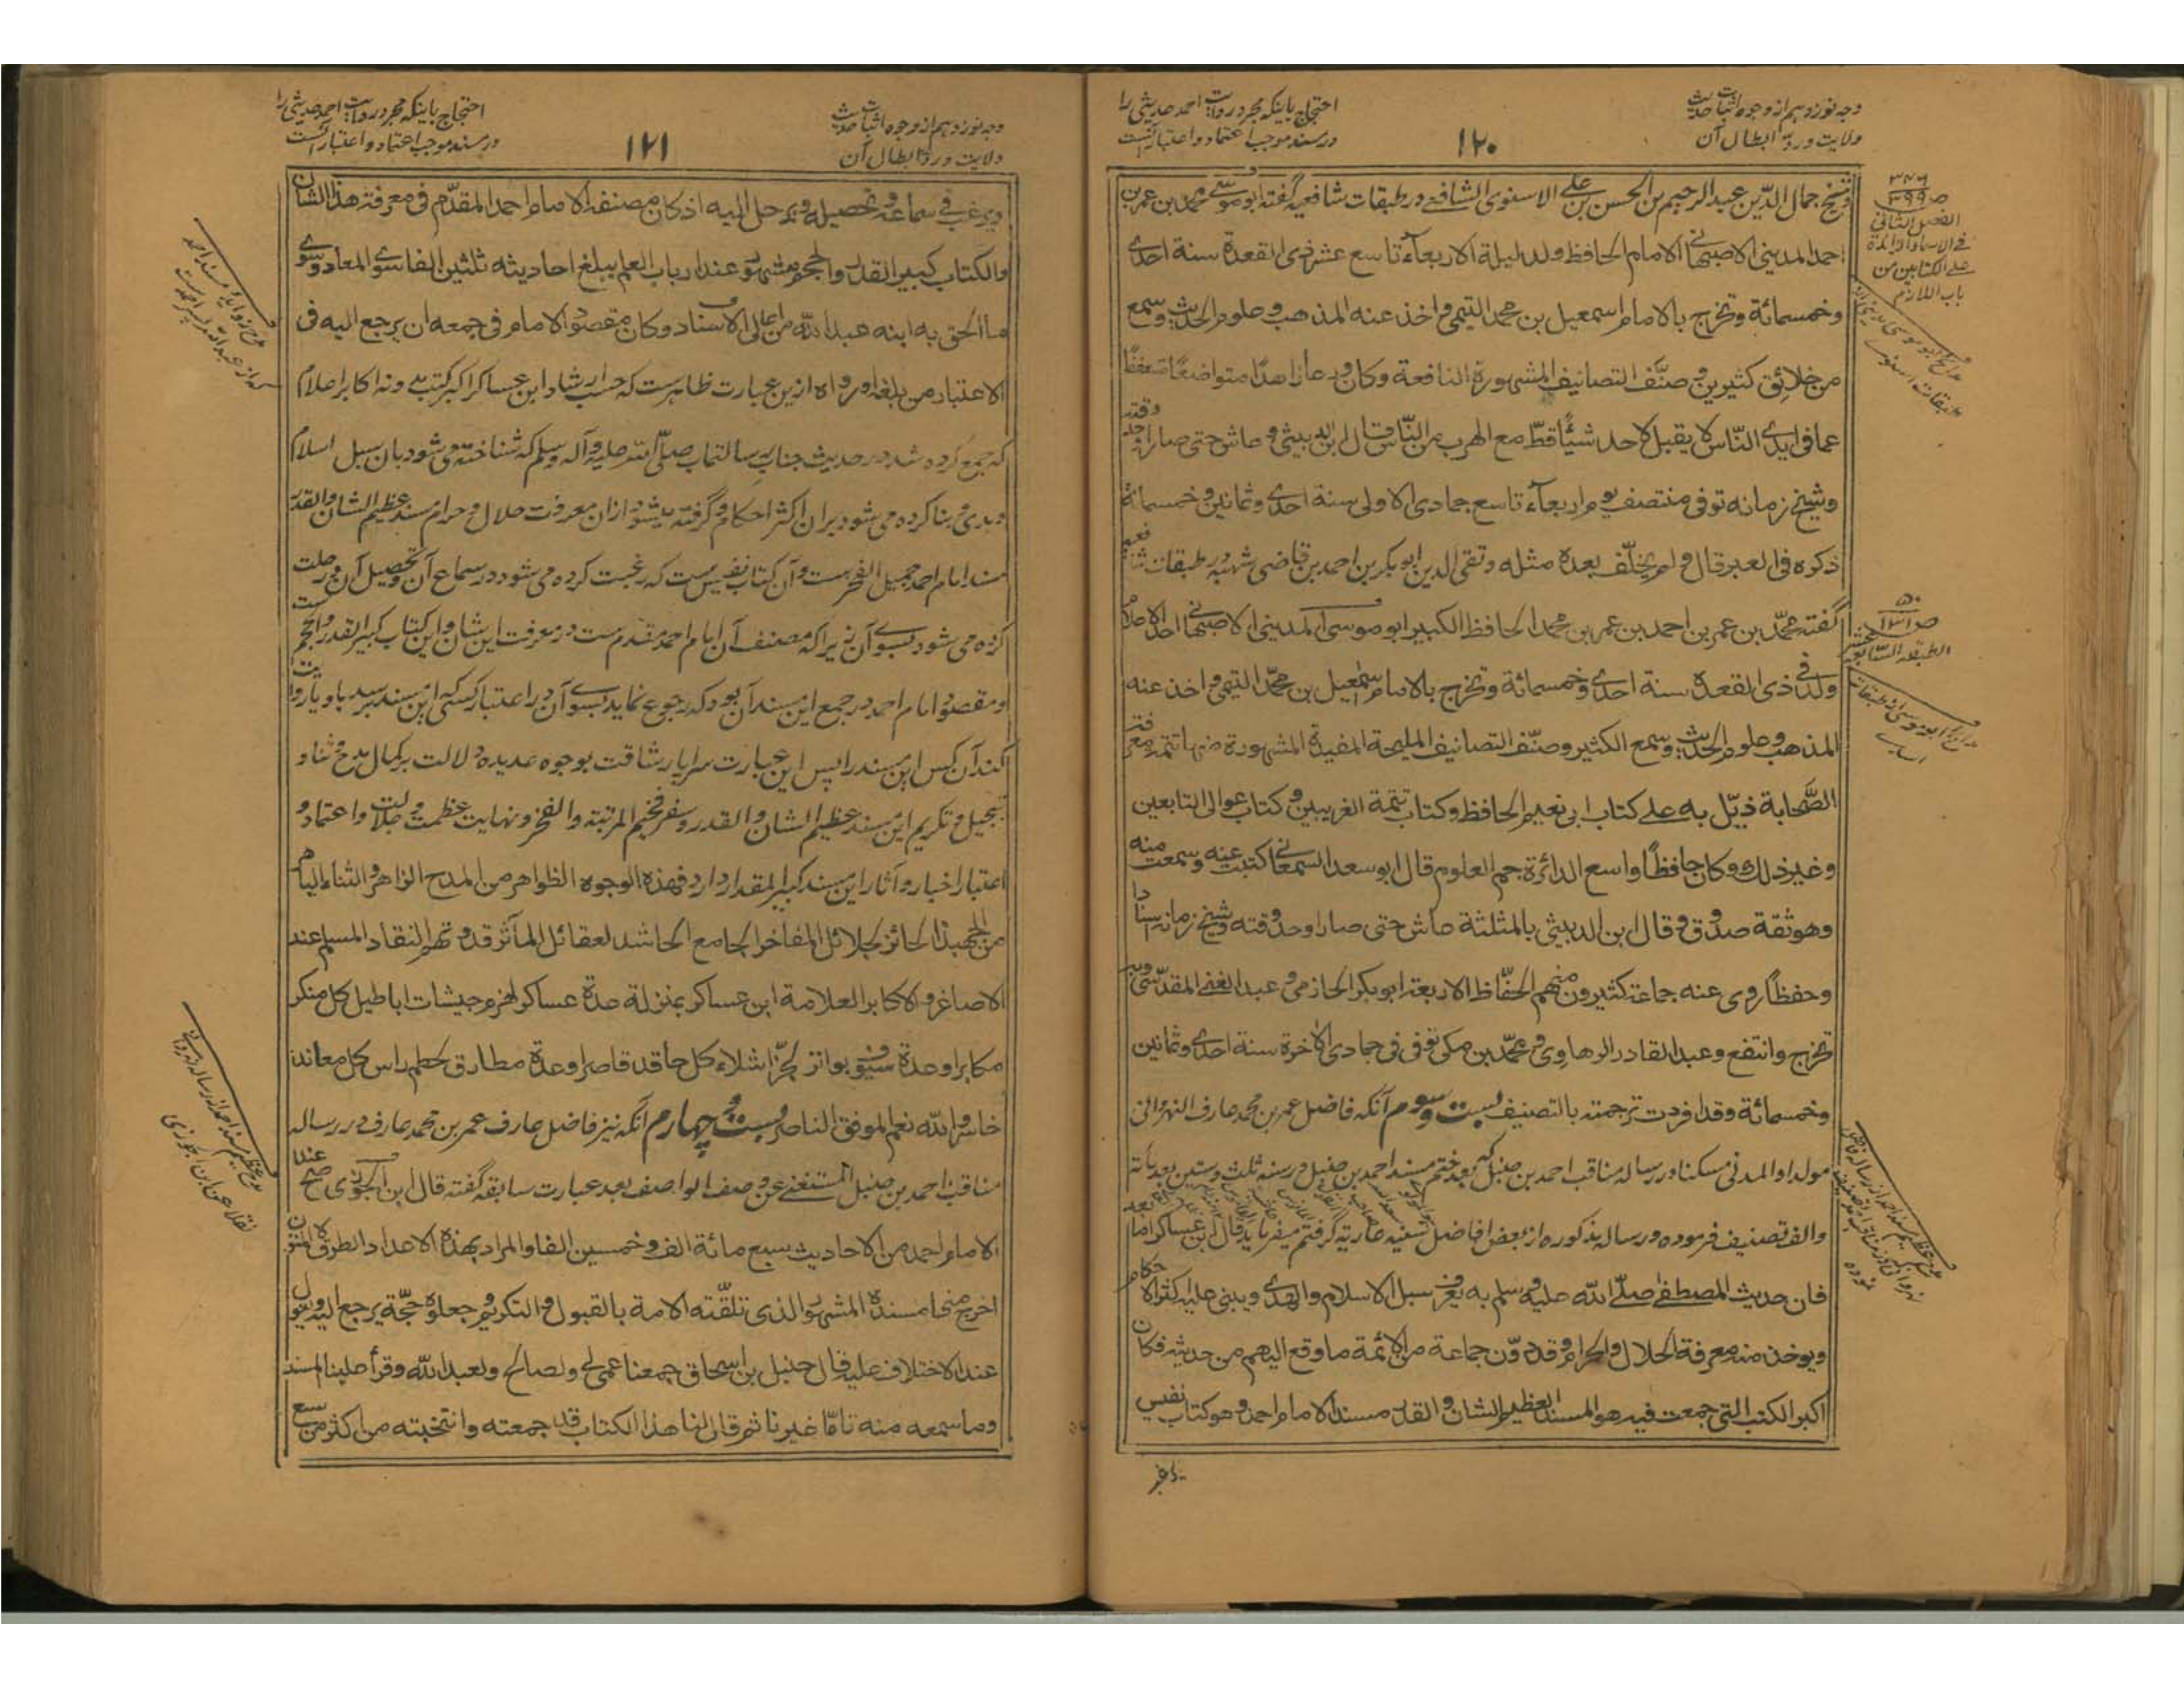 وجه نوزدهم از وجوه اثبات حدیث
ولایت و ردّ ابطال آن
۱۲۰
احتجاج باینکه مجرد روایت احمد حدیثی را
در مسند موجب اعتماد و اعتبار آنست
وشیخ جمال الدّین عبد الرحیم بن الحسن بن علی الاسنوی الشافعی در طبقات شافعیه گفته ابو موسی محمد بن عمر بن
احمد المدینی الاصبهانی الامام الحافظ ولد لیلة الاربعاء تاسع عشر ذی القعدة سنة احدی
وخمسمائة وتخرج بالامام اسمعیل بن محمد التیمی واخذ عنه المذهب وعلوم الحدیث وسمع
من خلائق کثیرین وصنّف التصانیف المشهورة النافعة وکان ورعا زاهدًا متواضعًا متعففًا
عما فی ایدی النّاس لا یقبل لاحد شیئًا قطّ مع الهرب من النّاس قال ابن الدبیثی وعاش حتی صار اوحد وقته
وشیخ زمانه توفی منتصف یوم اربعاء تاسع جمادی الاولی سنة احدی وثمانین وخمسمائة
ذکره فی العبر قال ولم یخلّف بعده مثله وتقی الدین ابو بکر بن احمد بن قاضی شهبه در طبقات شافعیه
گفته محمّد بن عمر بن احمد بن عمر بن محمد الحافظ الکبیر ابو موسی المدینی الاصبهانی احد الاعلام
ولد فی ذی القعدة سنة احدی وخمسمائة وتخرج بالامام اسمعیل بن محمّد التیمی واخذ عنه
المذهب وعلوم الحدیث وسمع الکثیر وصنّف التصانیف الملیحة المفیدة المشهورة منها تتمة معرفة
الصّحابة ذیّل به علی کتاب ابی نعیم الحافظ وکتاب تتمة الغریبین وکتاب عوالی التابعین
وغیر ذلك وکان حافظًا واسع الدائرة جم العلوم قال ابو سعد السمعانی کتبت عنه وسمعت منه
وهو ثقة صدوق وقال ابن الدبیثی بالمثلثة عاش حتی صار اوحد وقته وشیخ زمانه اسنادا
وحفظًا روی عنه جماعة کثیرون منهم الحفّاظ الاربعة ابو بکر الحازمی وعبد الغنی المقدّسی وبه
تخرج وانتفع وعبد القادر الرهاوی ومحمّد بن مکی توفی فی جمادی الآخرة سنة احدی وثمانین
وخمسمائة وقد افردت ترجمته بالتصنیف بیست وسوم آنکه فاضل عمر بن محمد عارف النهروانی
مولدا و المدنی مسکنا در رساله مناقب احمد بن حنبل که بعد ختم مسند احمد بن حنبل در سنه ثلث وستین بعد مائة
والف تصنیف فرموده و رساله مذکوره از بعض افاضل سنیه عاریة گرفتم میفرماید قال ابن عساکر اما بعد
فان حدیث المصطفی صلّی الله علیه وسلم به یعرف سبل الاسلام والهدی ویبنی علیه اکثر الاحکام
ویوخذ منه معرفة الحلال والحرام وقد دوّن جماعة من الائمة ما وقع الیهم من حدیثه فکان
اکبر الکتب التی جمعت فیه هو المسند العظیم الشان والقدر مسند الامام احمد وهو کتاب نفیس
یرغب
۳۴۶
ص ۳۹۹
الفصل الثانی
فی الاسماء الزائدة
علی الکتابین من
باب اللازم
مدائح ابو موسی مدینی از
طبقات اسنوی
۵۰
ص ۱۳۱
الطبقة السّابعة عشر
مدائح ابو موسی از طبقات
اسدی
وجه نوزدهم از وجوه اثبات حدیث
ولایت و ردّ ابطال آن
۱۲۱
احتجاج باینکه مجرد روایت احمد حدیثی را
در مسند موجب اعتماد و اعتبار آنست
ویرغب فی سماعه وتحصیله ویرحل الیه اذ کان مصنفه الامام احمد المقدّم فی معرفة هذا الشان
والکتاب کبیر القدر والحجم مشهور عند ارباب العلم یبلغ احادیثه ثلثین الفا سوی المعاد وسوی
ما الحق به ابنه عبد الله من عالی الاسناد وکان مقصود الامام فی جمعه ان یرجع الیه فی
الاعتبار من بلغه او رواه ازین عبارت ظاهرست که حسب ارشاد ابن عساکر اکبر کتب مدونه اکابر اعلام
که جمع کرده شد در حدیث جناب رسالتمآب صلّی الله علیه وآله وسلم که شناخته می شود بان سبل اسلام
وهدی و بنا کرده می شود بران اکثر احکام و گرفته میشود ازان معرفت حلال و حرام مسند عظیم الشان والقدر
مسند امام احمد جمیل الفخرست و آن کتاب نفیس ست که رغبت کرده می شود در سماع آن و تحصیل آن و رحلت
کرده می شود بسوی آن زیرا که مصنف آن امام احمد مقدم ست در معرفت این شان و این کتاب کبیر القدر والحجم ست
و مقصود امام احمد در جمع این مسند آن بود که رجوع نماید بسوی آن در اعتبار کسی که این مسند برسد باو یا روایت
کند آن کس این مسند را پس این عبارت سراپا رشاقت بوجوه عدیده دلالت بر کمال مدح و ثنا و
تبجیل و تکریم این مسند عظیم الشان والقدر و سفر فخیم المرتبة والفخر و نهایت عظمت و جلالت و اعتماد و
اعتبار اخبار و آثار این مسند کبیر المقدار دارد فهذه الوجوه الظواهر من المدح الزاهر والثناء الباهر
من الجهبذ الحائز لجلائل المفاخر الجامع الحاشد لعقائل المآثر قدوتهم النقاد المسلم عند
الاصاغر والاکابر العلامة ابن عساکر بمنزلة عدة عساکر لهزم جیشات اباطیل کل منکر
مکابر وعدة سیوف بواتر لجزّ اشلاء کل حاقد قاصر وعدة مطارق لحطم راس کل معاند
خاسر والله نعم الموفق الناصر بیست و چهارم آنکه نیز فاضل عارف عمر بن محمد عارف در رساله
مناقب احمد بن حنبل المستغنی عن وصف الواصف بعد عبارت سابقه گفته قال ابن الجوزی صح عند
الامام احمد من الاحادیث سبع مائة الف وخمسین الفا والمراد بهذه الاعداد الطرق لا المتون
اخرج منها مسنده المشهور الذی تلقّته الامة بالقبول والتکریم وجعلوه حجّة یرجع الیه ویعول
عند الاختلاف علیه قال حنبل بن اسحاق جمعنا عمی لی ولصالح ولعبد الله وقرأ علینا المسند
وما سمعه منه تامّا غیرنا ثم قال لنا هذا الکتاب قد جمعته وانتخبته من اکثر من سبع